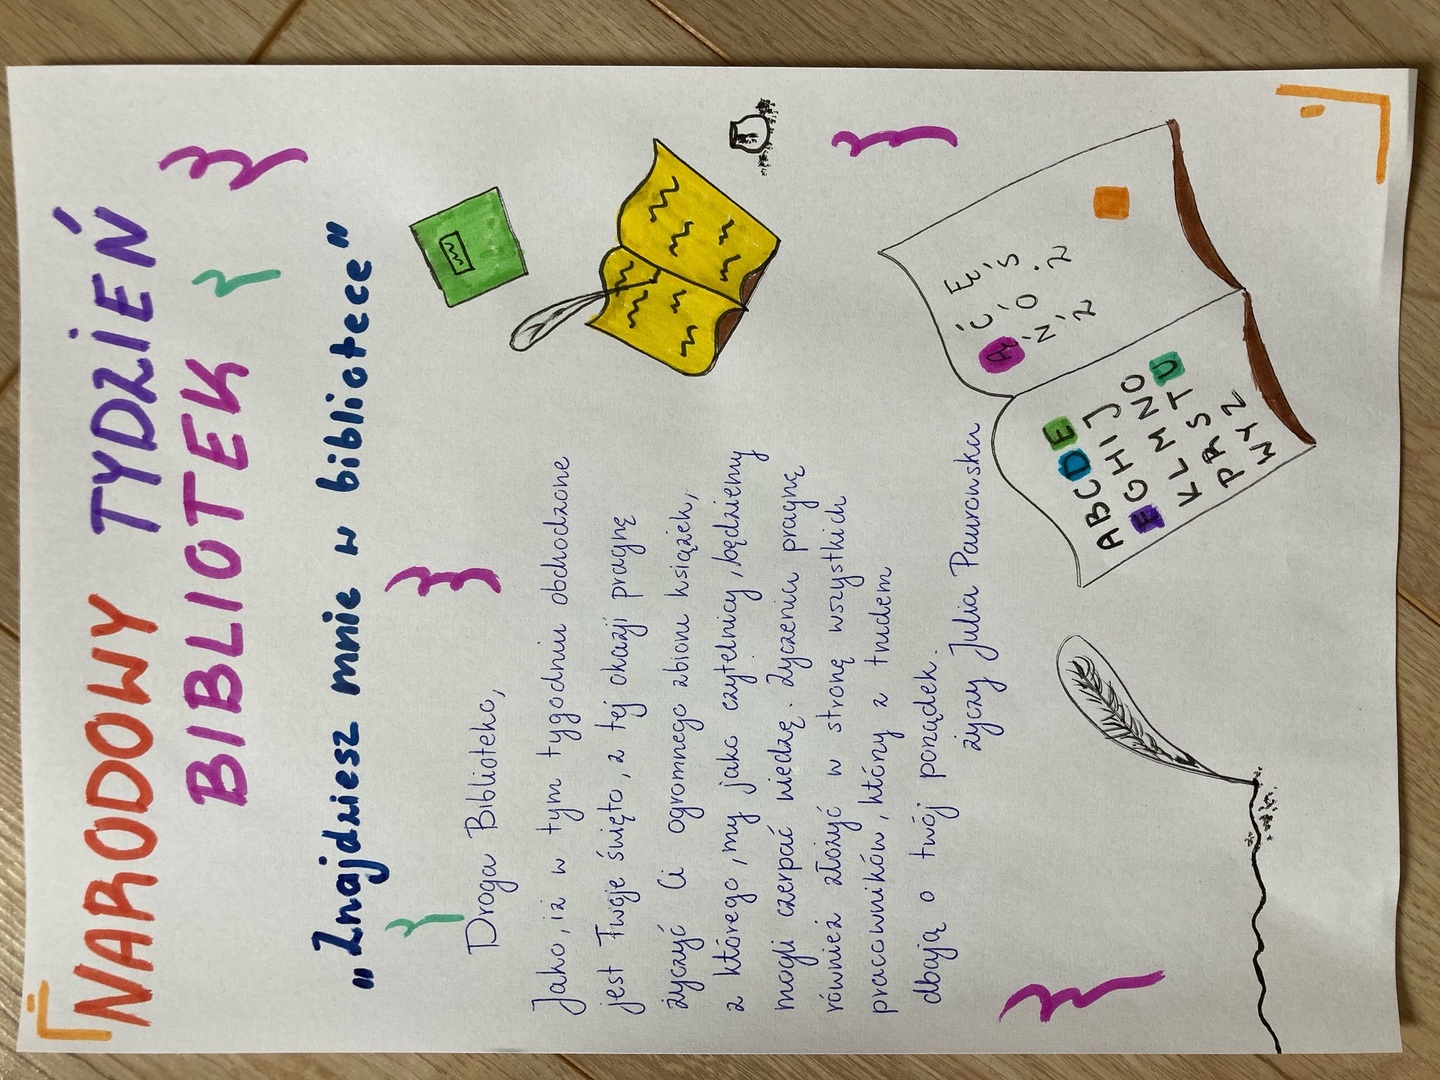 NARODOWY TYDZIEŃ
BIBLIOTEK
"Znajdziesz mnie w bibliotece"
Droga Biblioteko,
Jako, iż w tym tygodniu obchodzone
jest Twoje święto, z tej okazji pragnę
życzyć Ci ogromnego zbioru książek,
z którego, my jako czytelnicy, będziemy
mogli czerpać wiedzę. Życzenia pragnę
również złożyć w stronę wszystkich
pracowników, którzy z trudem
dbają o twój porządek.
życzy Julia Pawrowska
ABCDE
FGHIJ
KLMNO
PRSTU
WYZ
Ą Ć Ę
Ń Ó Ś
Ź Ż